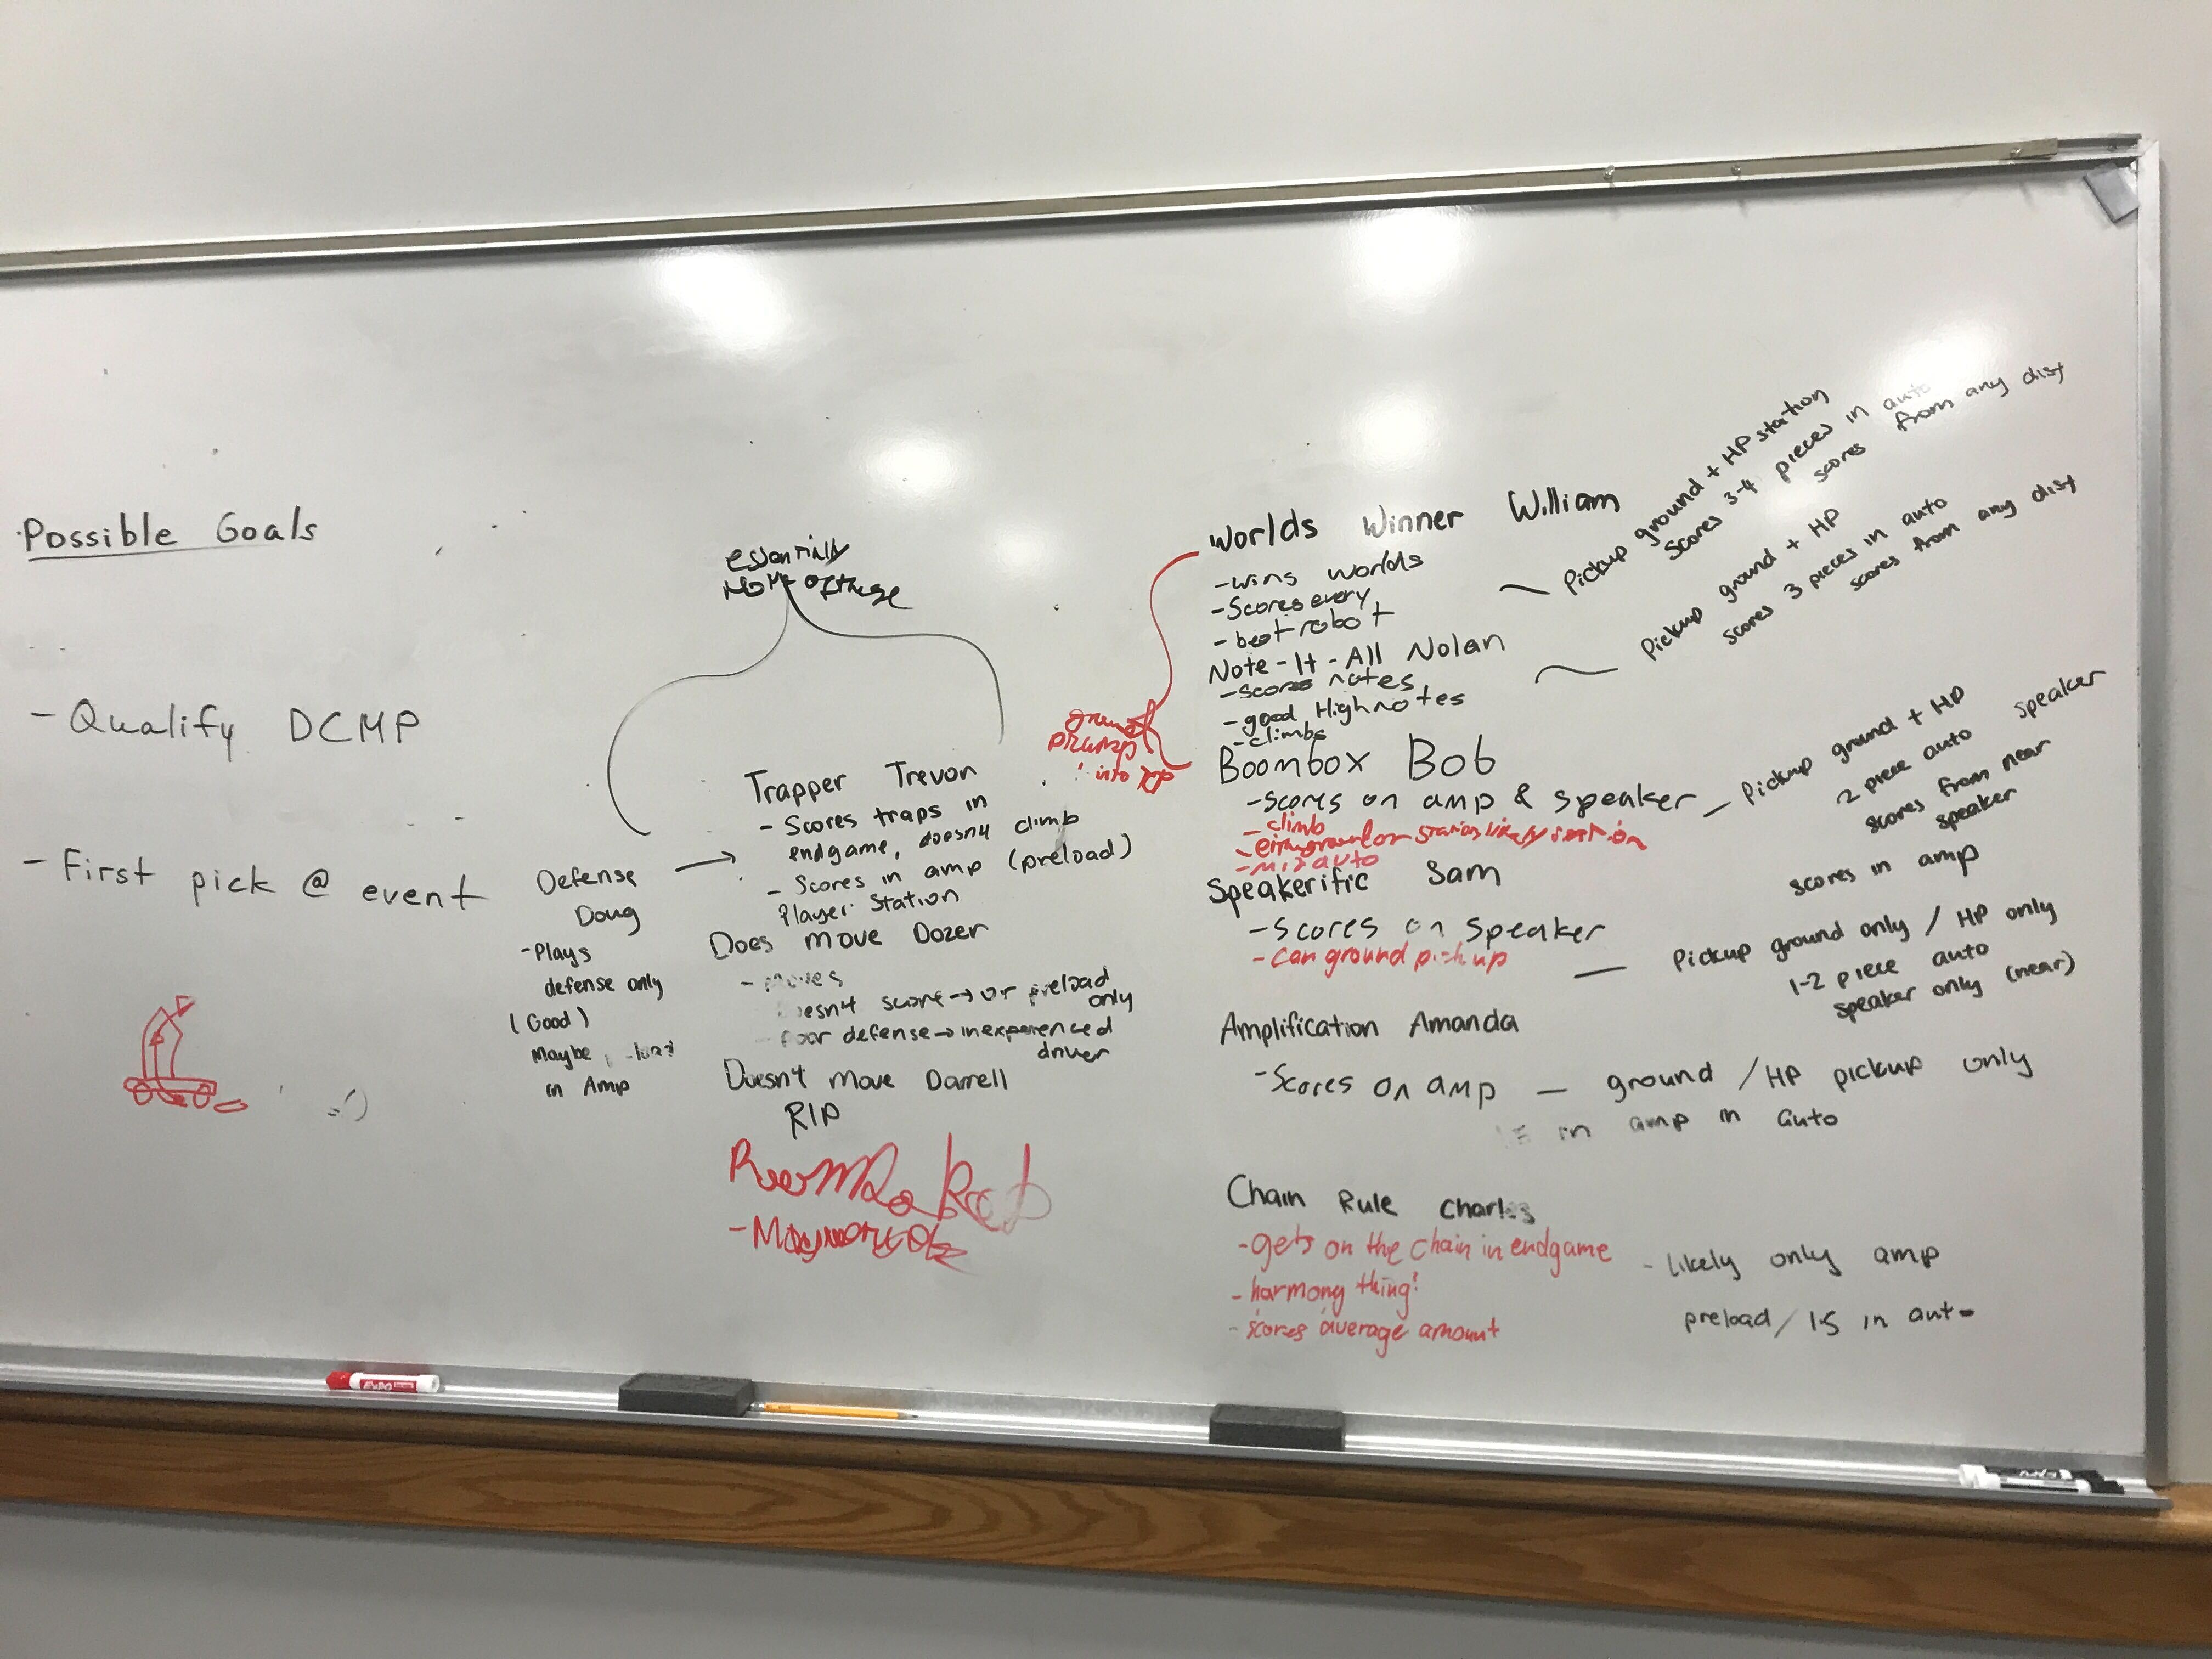 Possible Goals
- Qualify DCMP
- First pick @ event
Defense
Doug
- Plays
defense only
(Good)
Maybe
in Amp
essentially
Trapper Trevon
- Scores traps in
endgame, doesn't climb
- Scores in amp (preload)
Player Station
Does move Dozer
- moves
doesn't score → or preload
only
poor defense → inexperienced
driver
Doesn't move Darrell
RIP
ground
into
Worlds Winner William
- wins worlds
- Scores every
- best robot
Pickup ground + HP station
Scores 3-4 pieces in auto
scores from any dist
Note-It-All Nolan
- scores notes
- good High notes
- climbs
Pickup ground + HP
scores 3 pieces in auto
scores from any dist
Boombox Bob
- scores on amp & speaker
- climb
- station likely
- auto
Pickup ground + HP
2 piece auto speaker
scores from near
speaker
scores in amp
Speakerific Sam
- Scores on speaker
- can ground pickup
Pickup ground only / HP only
1-2 piece auto
speaker only (near)
Amplification Amanda
- Scores on amp — ground / HP pickup only
in amp in auto
Chain Rule Charles
- gets on the chain in endgame
- harmony thing!
- scores average amount
- likely only amp
preload / 1.5 in auto
EXPO